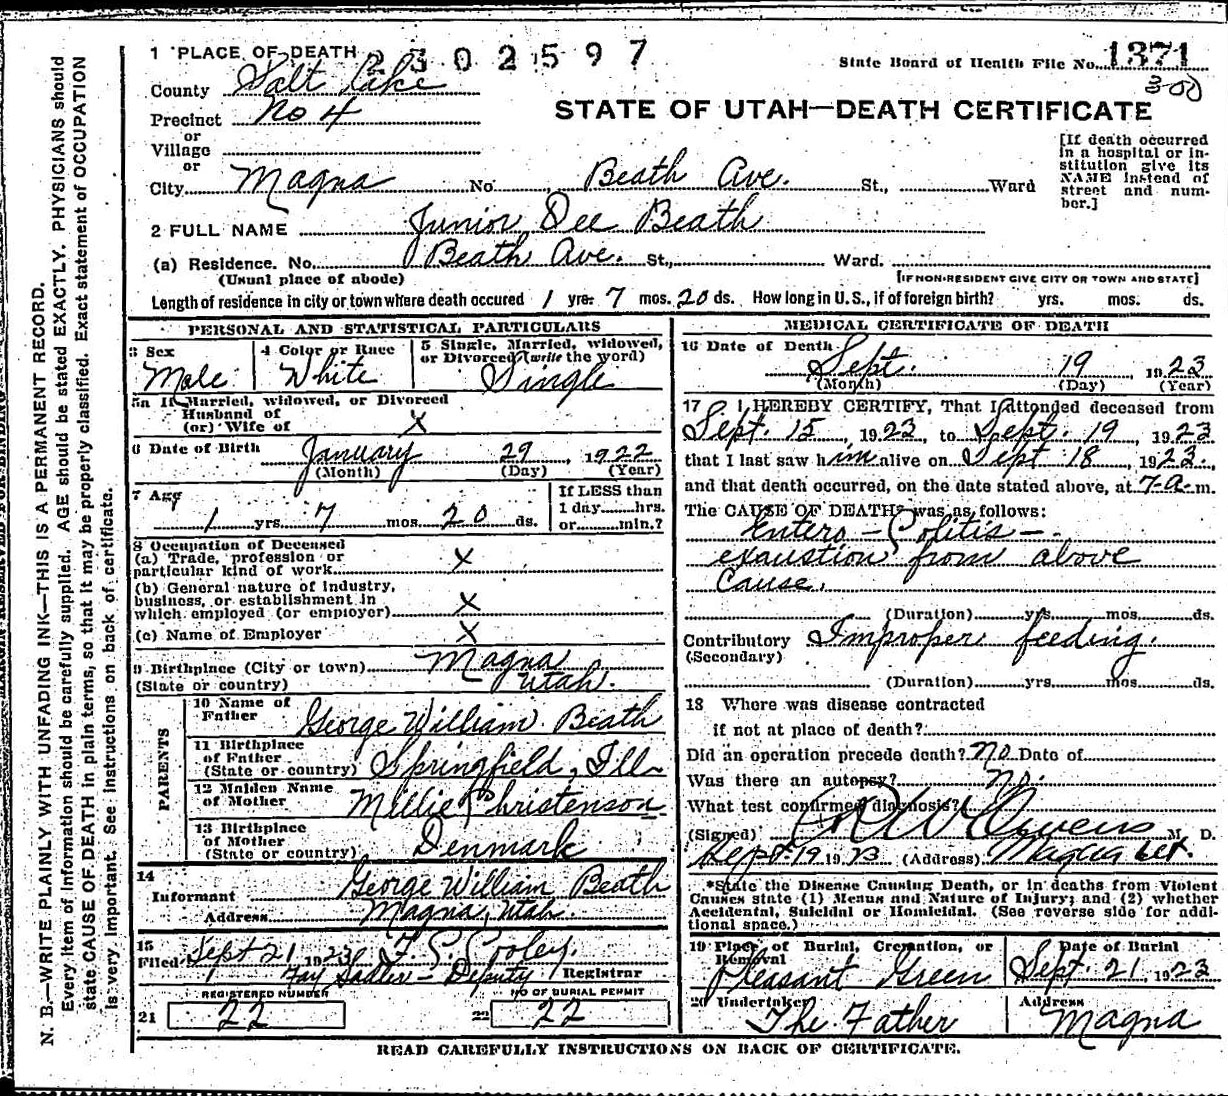 1 PLACE OF DEATH 2302597
State Board of Health File No. 1371
County Salt Lake
300
Precinct No 4
STATE OF UTAH—DEATH CERTIFICATE
or
Village
or
City Magna No Beath Ave. St., Ward
[If death occurred in a hospital or institution give its NAME instead of street and number.]
2 FULL NAME Junior Dee Beath
(a) Residence. No. Beath Ave. St., Ward.
(Usual place of abode) [IF NON-RESIDENT GIVE CITY OR TOWN AND STATE]
Length of residence in city or town where death occured 1 yrs 7 mos. 20 ds. How long in U.S., if of foreign birth? yrs. mos. ds.
PERSONAL AND STATISTICAL PARTICULARS
3 Sex
Male
4 Color or Race
White
5 Single, Married, widowed,
or Divorced (write the word)
Single
5a If Married, widowed, or Divorced
Husband of
(or) Wife of X
6 Date of Birth January 29, 1922
(Month) (Day) (Year)
7 Age
1 yrs. 7 mos. 20 ds.
If LESS than
1 day hrs.
or min.?
8 Occupation of Deceased
(a) Trade, profession or
particular kind of work X
(b) General nature of Industry,
business, or establishment in
which employed (or employer) X
(c) Name of Employer X
9 Birthplace (City or town) Magna
(State or country) Utah.
PARENTS
10 Name of
Father George William Beath
11 Birthplace
of Father
(State or country) Springfield, Ill
12 Maiden Name
of Mother Millie Christenson
13 Birthplace
of Mother
(State or country) Denmark
14
Informant George William Beath
Address Magna, Utah.
15
Filed Sept 21 1923 F. S. Cooley.
Fay Sadler - Deputy Registrar
REGISTERED NUMBER
21 22
NO OF BURIAL PERMIT
22 22
MEDICAL CERTIFICATE OF DEATH
16 Date of Death
Sept. 19 1923
(Month) (Day) (Year)
17 I HEREBY CERTIFY, That I attended deceased from
Sept. 15, 1923, to Sept. 19, 1923
that I last saw him alive on Sept 18, 1923,
and that death occurred, on the date stated above, at 7-a-m.
The CAUSE OF DEATH* was as follows:
Entero-Colitis-
exaustion from above
Cause.
(Duration) yrs. mos. ds.
Contributory Improper feeding.
(Secondary)
(Duration) yrs mos ds.
18 Where was disease contracted
if not at place of death?
Did an operation precede death? No Date of
Was there an autopsy? No.
What test confirmed diagnosis?
(Signed) Owens M. D.
Sept-19 1923 (Address) Magna Ut.
*State the Disease Causing Death, or in deaths from Violent
Causes state (1) Means and Nature of Injury; and (2) whether
Accidental, Suicidal or Homicidal. (See reverse side for addi-
tional space.)
19 Place of Burial, Cremation, or
Removal
Pleasant Green
Date of Burial
Sept. 21 1923
20 Undertaker
The Father
Address
Magna
READ CAREFULLY INSTRUCTIONS ON BACK OF CERTIFICATE.
MARGIN RESERVED FOR BINDING
N. B.—WRITE PLAINLY WITH UNFADING INK—THIS IS A PERMANENT RECORD.
Every item of information should be carefully supplied. AGE should be stated EXACTLY. PHYSICIANS should
state CAUSE OF DEATH in plain terms, so that it may be properly classified. Exact statement of OCCUPATION
is very important. See instructions on back of certificate.